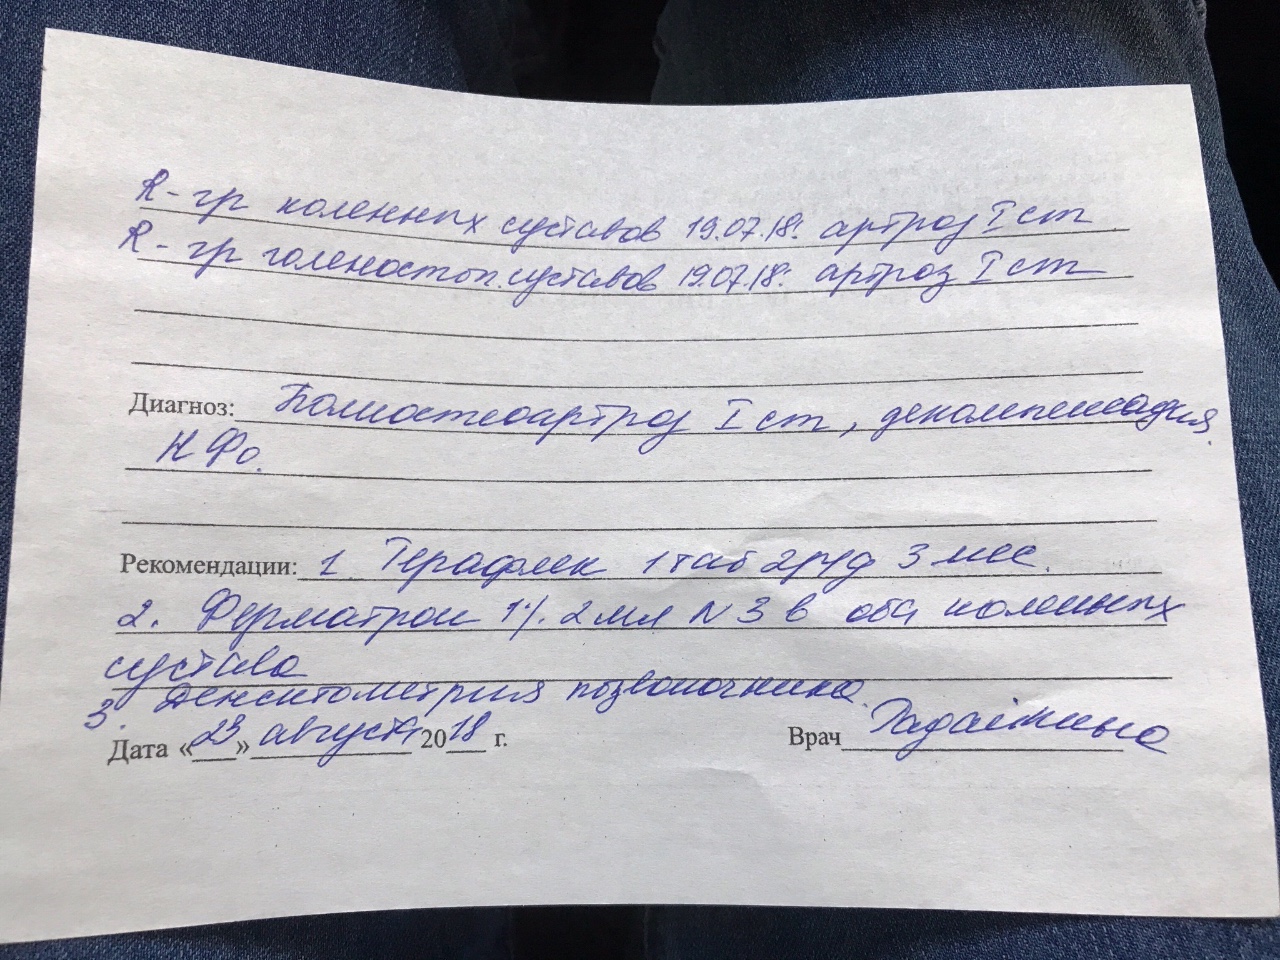 R-гр коленных суставов 19.07.18г. артроз I ст
R-гр голеностоп. суставов 19.07.18г. артроз I ст
Диагноз: Полиостеоартроз I ст, декомпенсация.
НФ0.
Рекомендации: 1 Терафлек 1 таб 2р/д 3 мес.
2. Ферматрон 1% 2 мл N 3 в оба коленных
сустава
3. Денситометрия позвоночника.
Дата «23» августа 2018 г. Врач